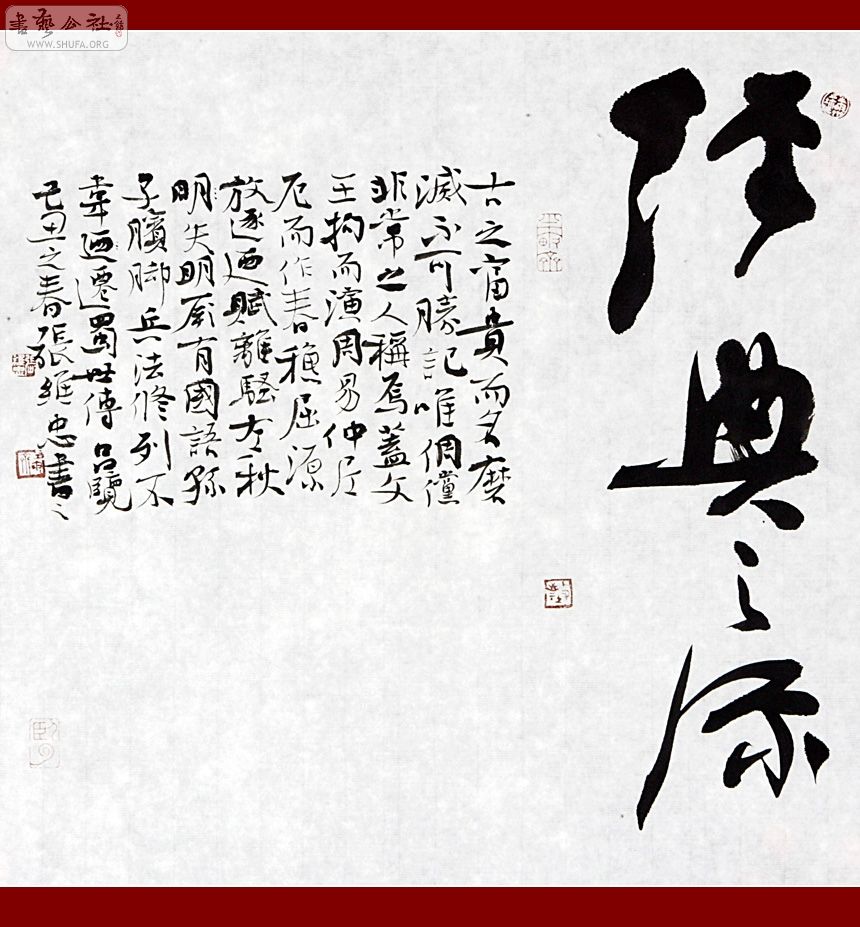 書藝公社
WWW.SHUFA.ORG
經典之源
古之富貴而名磨
滅不可勝記唯倜儻
非常之人稱焉蓋文
王拘而演周易仲尼
厄而作春穐屈源
放逐迺賦離騷左秋
明失明厥有國語孫
子臏脚兵法修列不
韋迺遷蜀世傳吕覽
己丑之春張維忠書之